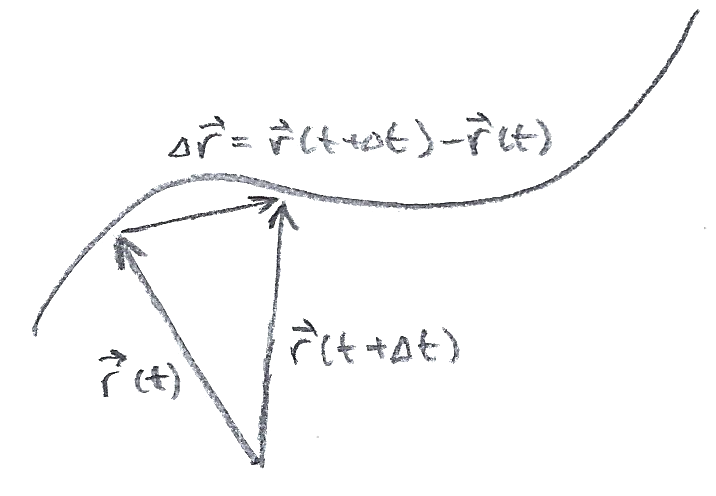 Δr⃗ = r⃗(t+Δt) − r⃗(t)
r⃗(t+Δt)
r⃗(t)